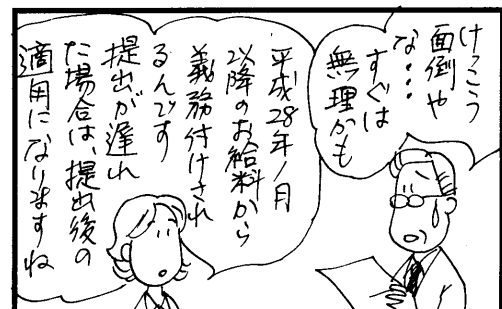 けっこう
面倒や
な…
すぐは
無理かも
平成28年1月
以降のお給料から
義務付けされ
るんです
提出が遅れ
た場合は、提出後の
適用になりますね